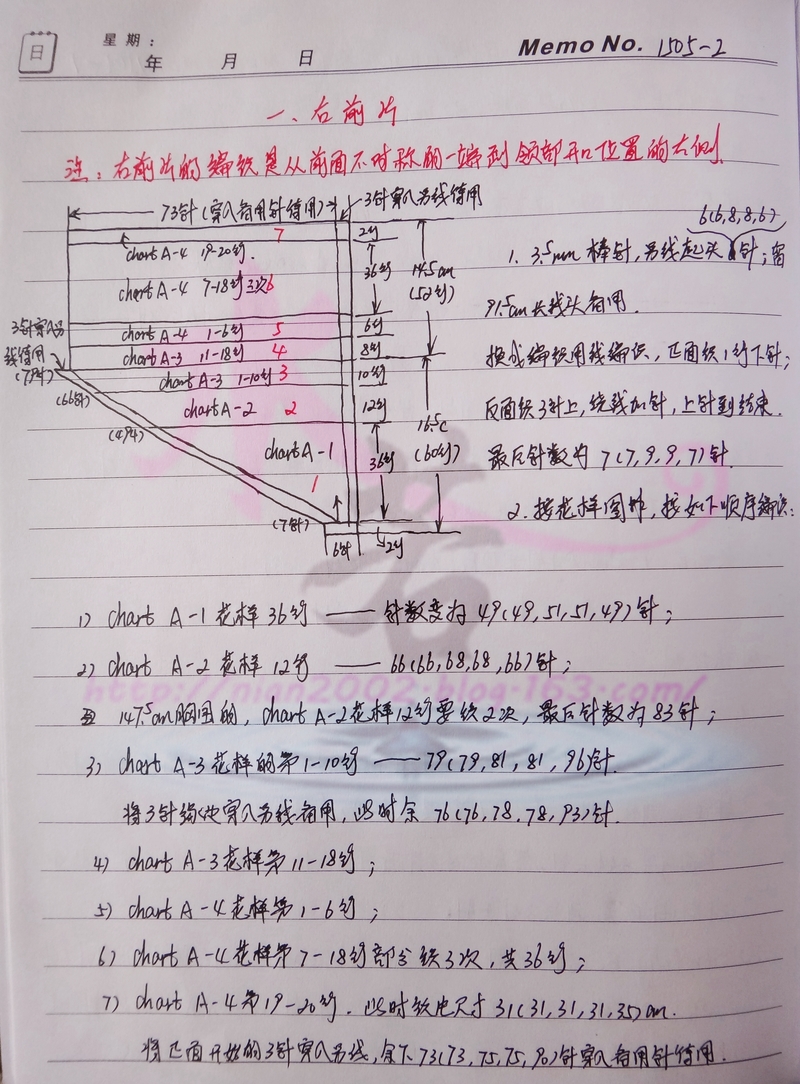 日
星期：
年 月 日
Memo No. 1505-2
一、右前片
注：右前片的编织是从前面不对称的一端到领部开口位置的右侧.
73针(穿入备用针待用)
3针穿入另线待用
6(6,8,8,6)
7
chart A-4 19-20行.
2行
chart A-4 7-18行 3次 6
36行
14.5cm
(52行)
1. 3.5mm 棒针,另线起头 针;留
91.5cm长线头备用.
3针穿入另
线待用
(79针)
chart A-4 1-6行 5
6行
chart A-3 11-18行 4
8行
chart A-3 1-10行 3
10行
换成编织用线编织,正面织1行下针;
(66针)
chart A-2 2
12行
反面织3针上,绕线加针,上针到结束.
(49针)
16.5c
(60行)
chart A-1
36行
最后针数为7(7,9,9,7)针.
1
2.按花样图解,按如下顺序编织:
(7针)
6针
2行
1) chart A-1花样36行 —— 针数变为49(49,51,51,49)针;
2) chart A-2花样12行 —— 66(66,68,68,66)针;
http://nian2002.blog.163.com/
147.5cm胸围的, chart A-2花样12行要织2次,最后针数为83针;
3) chart A-3花样的第1-10行 —— 79(79,81,81,96)针.
将3针穿入另线备用,此时余76(76,78,78,93)针.
4) chart A-3花样第11-18行;
5) chart A-4花样第1-6行;
6) chart A-4花样第7-18行部分织3次,共36行;
7) chart A-4第19-20行.此时织电尺寸31(31,31,31,35)cm.
将正面开始的3针穿入另线,余下73(73,75,75,90)针穿入备用针待用.